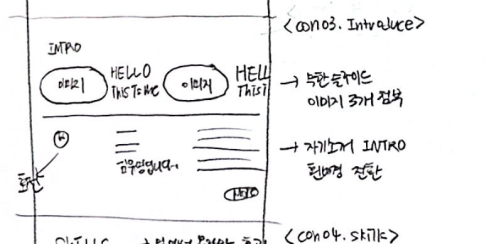 <con03. Introduce>
INTRO
이미지
HELLO
This Is Me
이미지
HELL
This I
→ 무한 슬라이드
이미지 3개 점부
→ 자기소개 INTRO
흰배경 전환
화살
입니다..
<con04. skills>